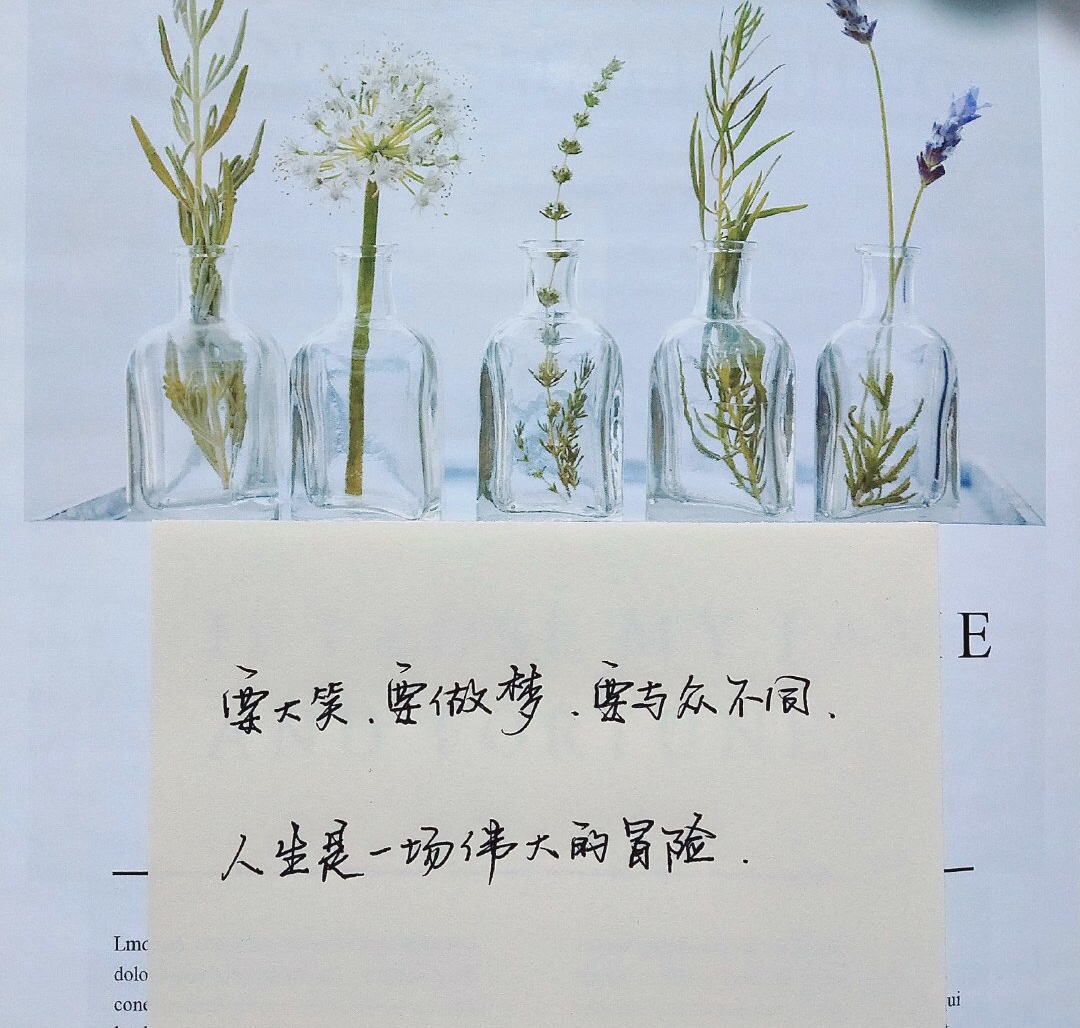 E
要大笑.要做梦.要与众不同.
人生是一场伟大的冒险.
Lmo
dolo
cone
ui